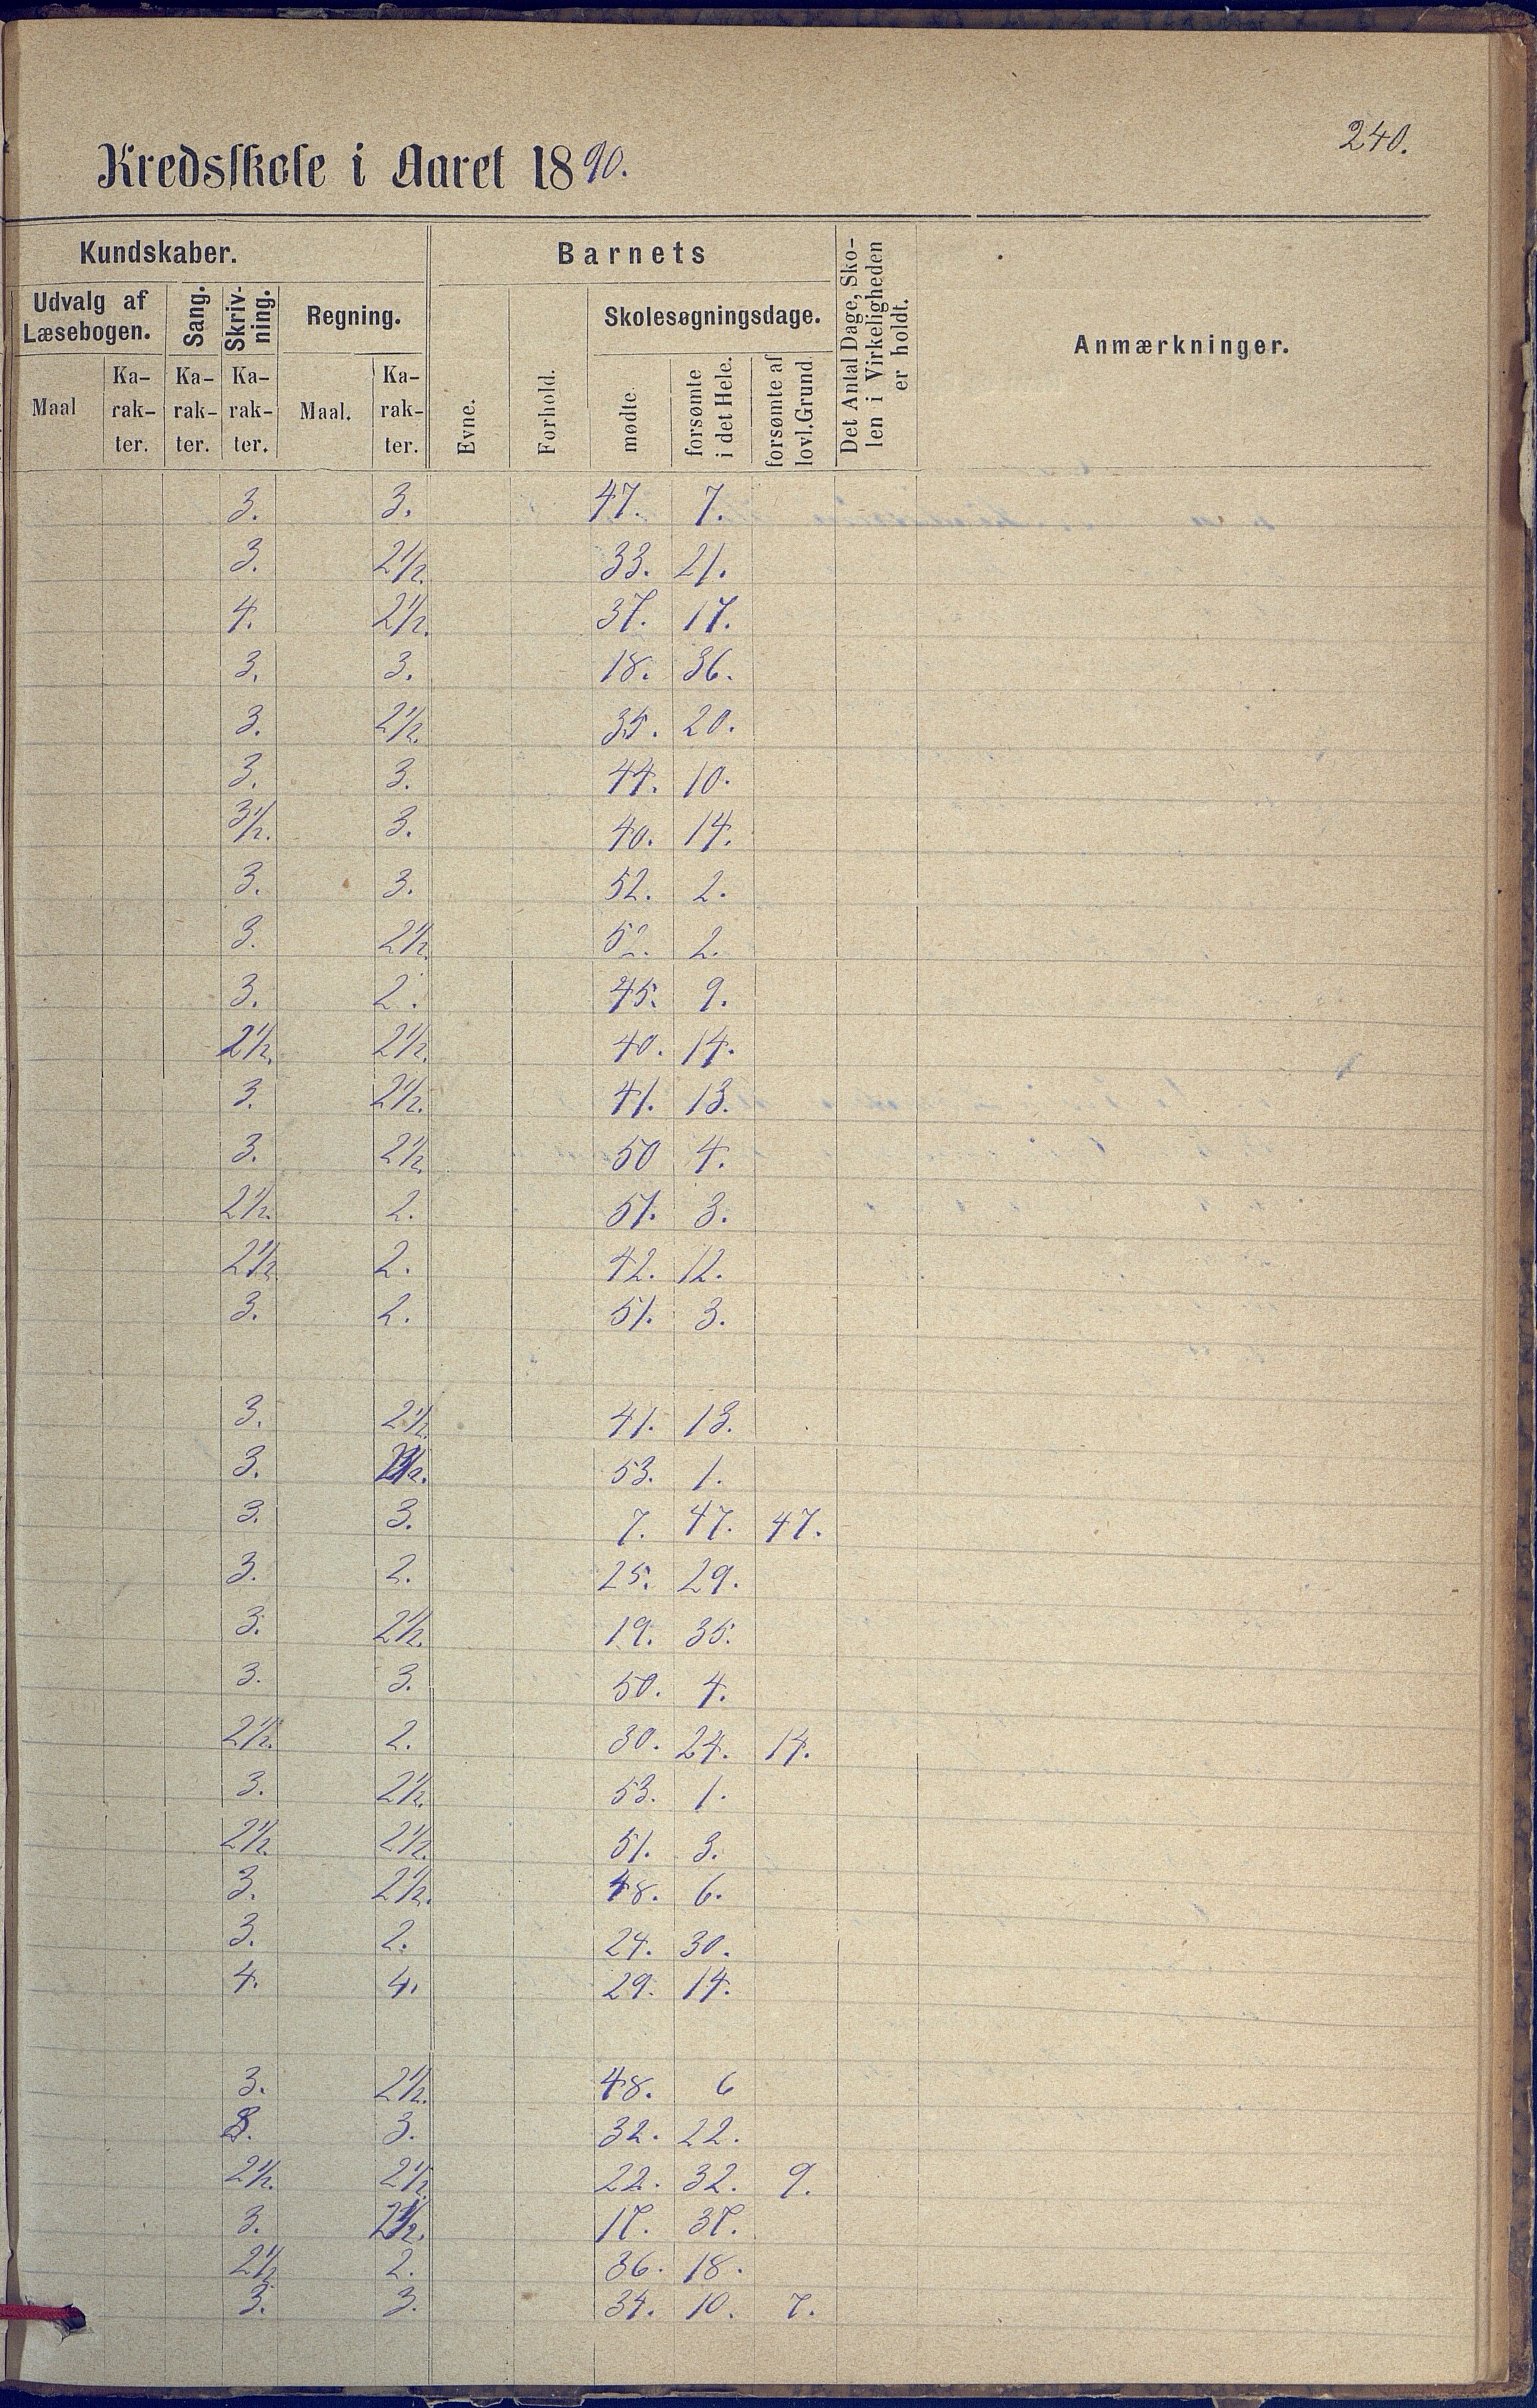 240.
Kredsskole i Aaret 1890.
Kundskaber.
Barnets
Det Antal Dage, Sko-
len i Virkeligheden
er holdt.
Anmærkninger.
Udvalg af
Læsebogen.
Sang.
Skriv-
ning.
Regning.
Evne.
Forhold.
Skolesøgningsdage.
Maal
Ka-
rak-
ter.
Ka-
rak-
ter.
Ka-
rak-
ter.
Maal.
Ka-
rak-
ter.
mødte
forsømte
i det Hele.
forsømte af
lovl. Grund
3. 3. 47. 7.
3. 2 1/2. 33. 21.
4. 2 1/2. 37. 17.
3. 3. 18. 36.
3. 2 1/2. 35. 20.
3. 3. 44. 10.
3 1/2. 3. 40. 14.
3. 3. 52. 2.
3. 2 1/2. 52. 2.
3. 2. 45. 9.
2 1/2. 2 1/2. 40. 14.
3. 2 1/2. 41. 13.
3. 2 1/2. 50 4.
2 1/2. 2. 51. 3.
2 1/2 2. 42. 12.
3. 2. 51. 3.
3. 2 1/2. 41. 13.
3. 53. 1.
3. 3. 7. 47. 47.
3. 2. 25. 29.
3. 2 1/2. 19. 35.
3. 3. 50. 4.
2 1/2. 2. 30. 24. 14.
3. 2 1/2. 53. 1.
2 1/2. 2 1/2. 51. 3.
3. 2 1/2. 48. 6.
3. 2. 24. 30.
4. 4. 29. 14.
3. 2 1/2. 48. 6
3. 32. 22.
2 1/2. 2 1/2. 22. 32. 9.
3. 17. 37.
2 1/2 2. 36. 18.
3. 3. 34. 10. 7.